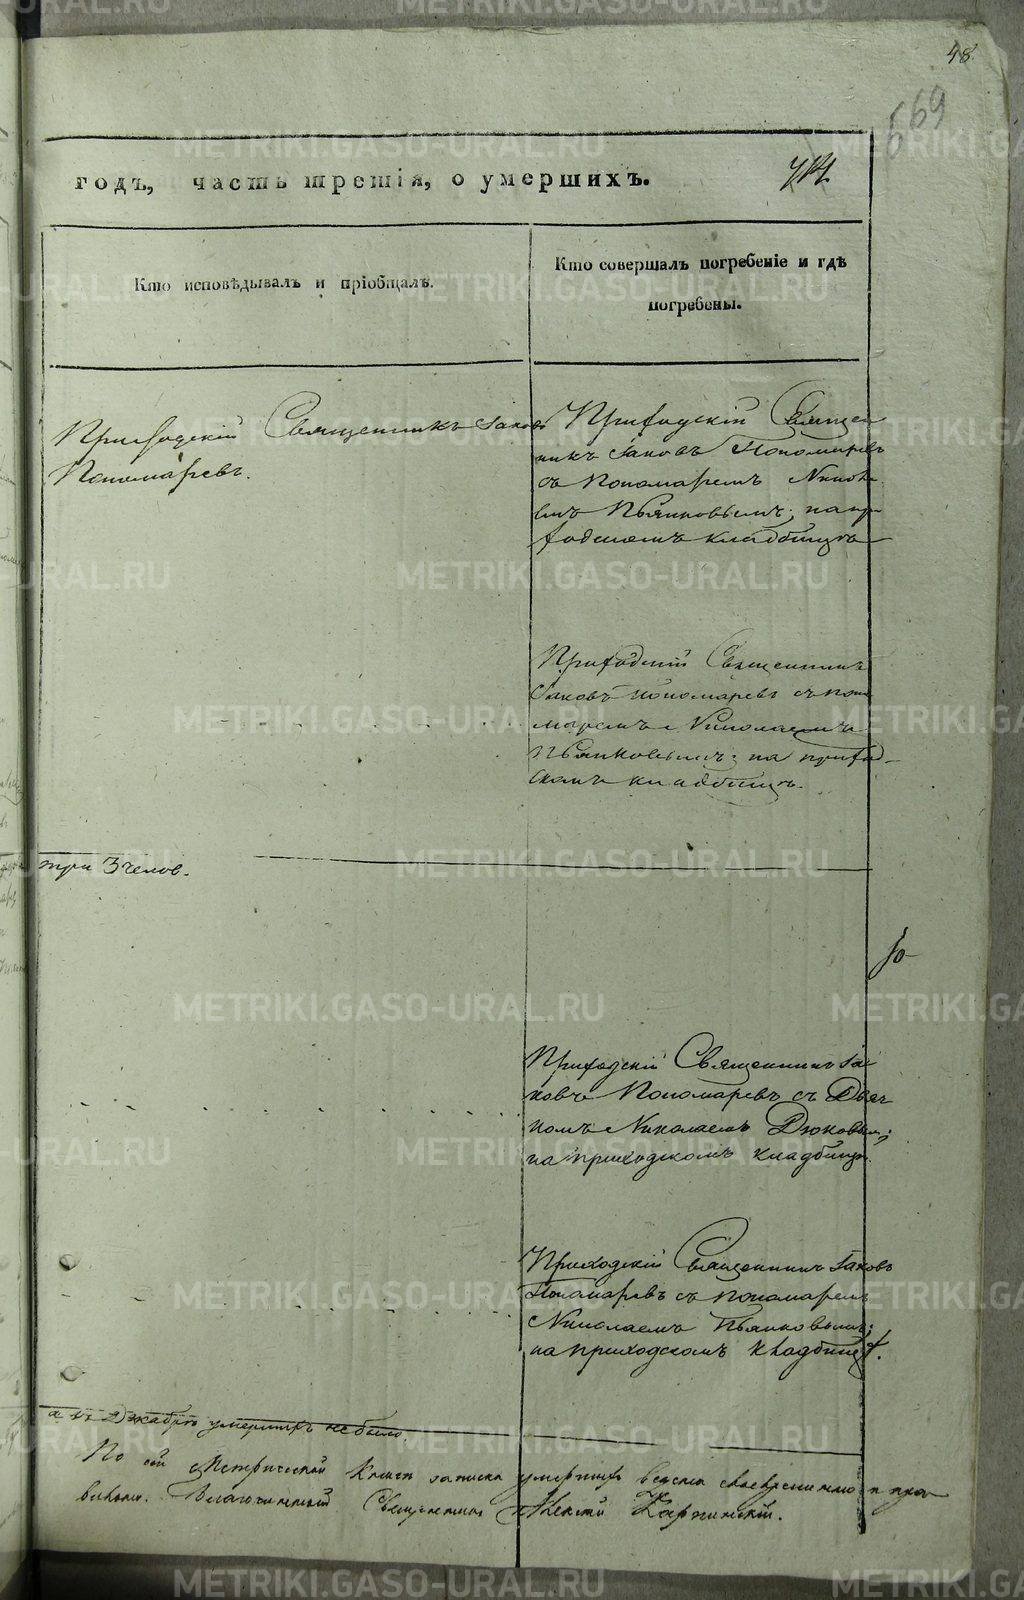 48.
569
годъ, часть третія, о умершихъ.
Кто исповѣдывалъ и пріобщалъ.
Кто совершалъ погребеніе и гдѣ
погребены.
Приходскій Священникъ Іаковъ
Пономаревъ.
Приходскій Священ
никъ Іаковъ Пономаревъ
съ Пономаремъ Никола
емъ Пьянковымъ; на при
ходскомъ кладбищѣ
Приходскій Священникъ
Іаковъ Пономаревъ съ поно
маремъ Николаемъ
Пьянковымъ; на приход-
скомъ кладбищѣ.
три 3 челов.
Приходскій Священникъ Іа
ковъ Пономаревъ съ Дьяч
комъ Николаемъ Дюковым;
на приходскомъ кладбищѣ.
Приходскій Священникъ Іаковъ
Пономаревъ съ пономаремъ
Николаемъ Пьянковымъ;
на приходскомъ кладбищѣ.
а въ Декабрѣ умершихъ не было.
По сей Метрической Книгѣ записка умершихъ ведена своевременно и пра
вильно. Благочинный Священникъ Алексій Карпинскій.
METRIKI.GASO-URAL.RU